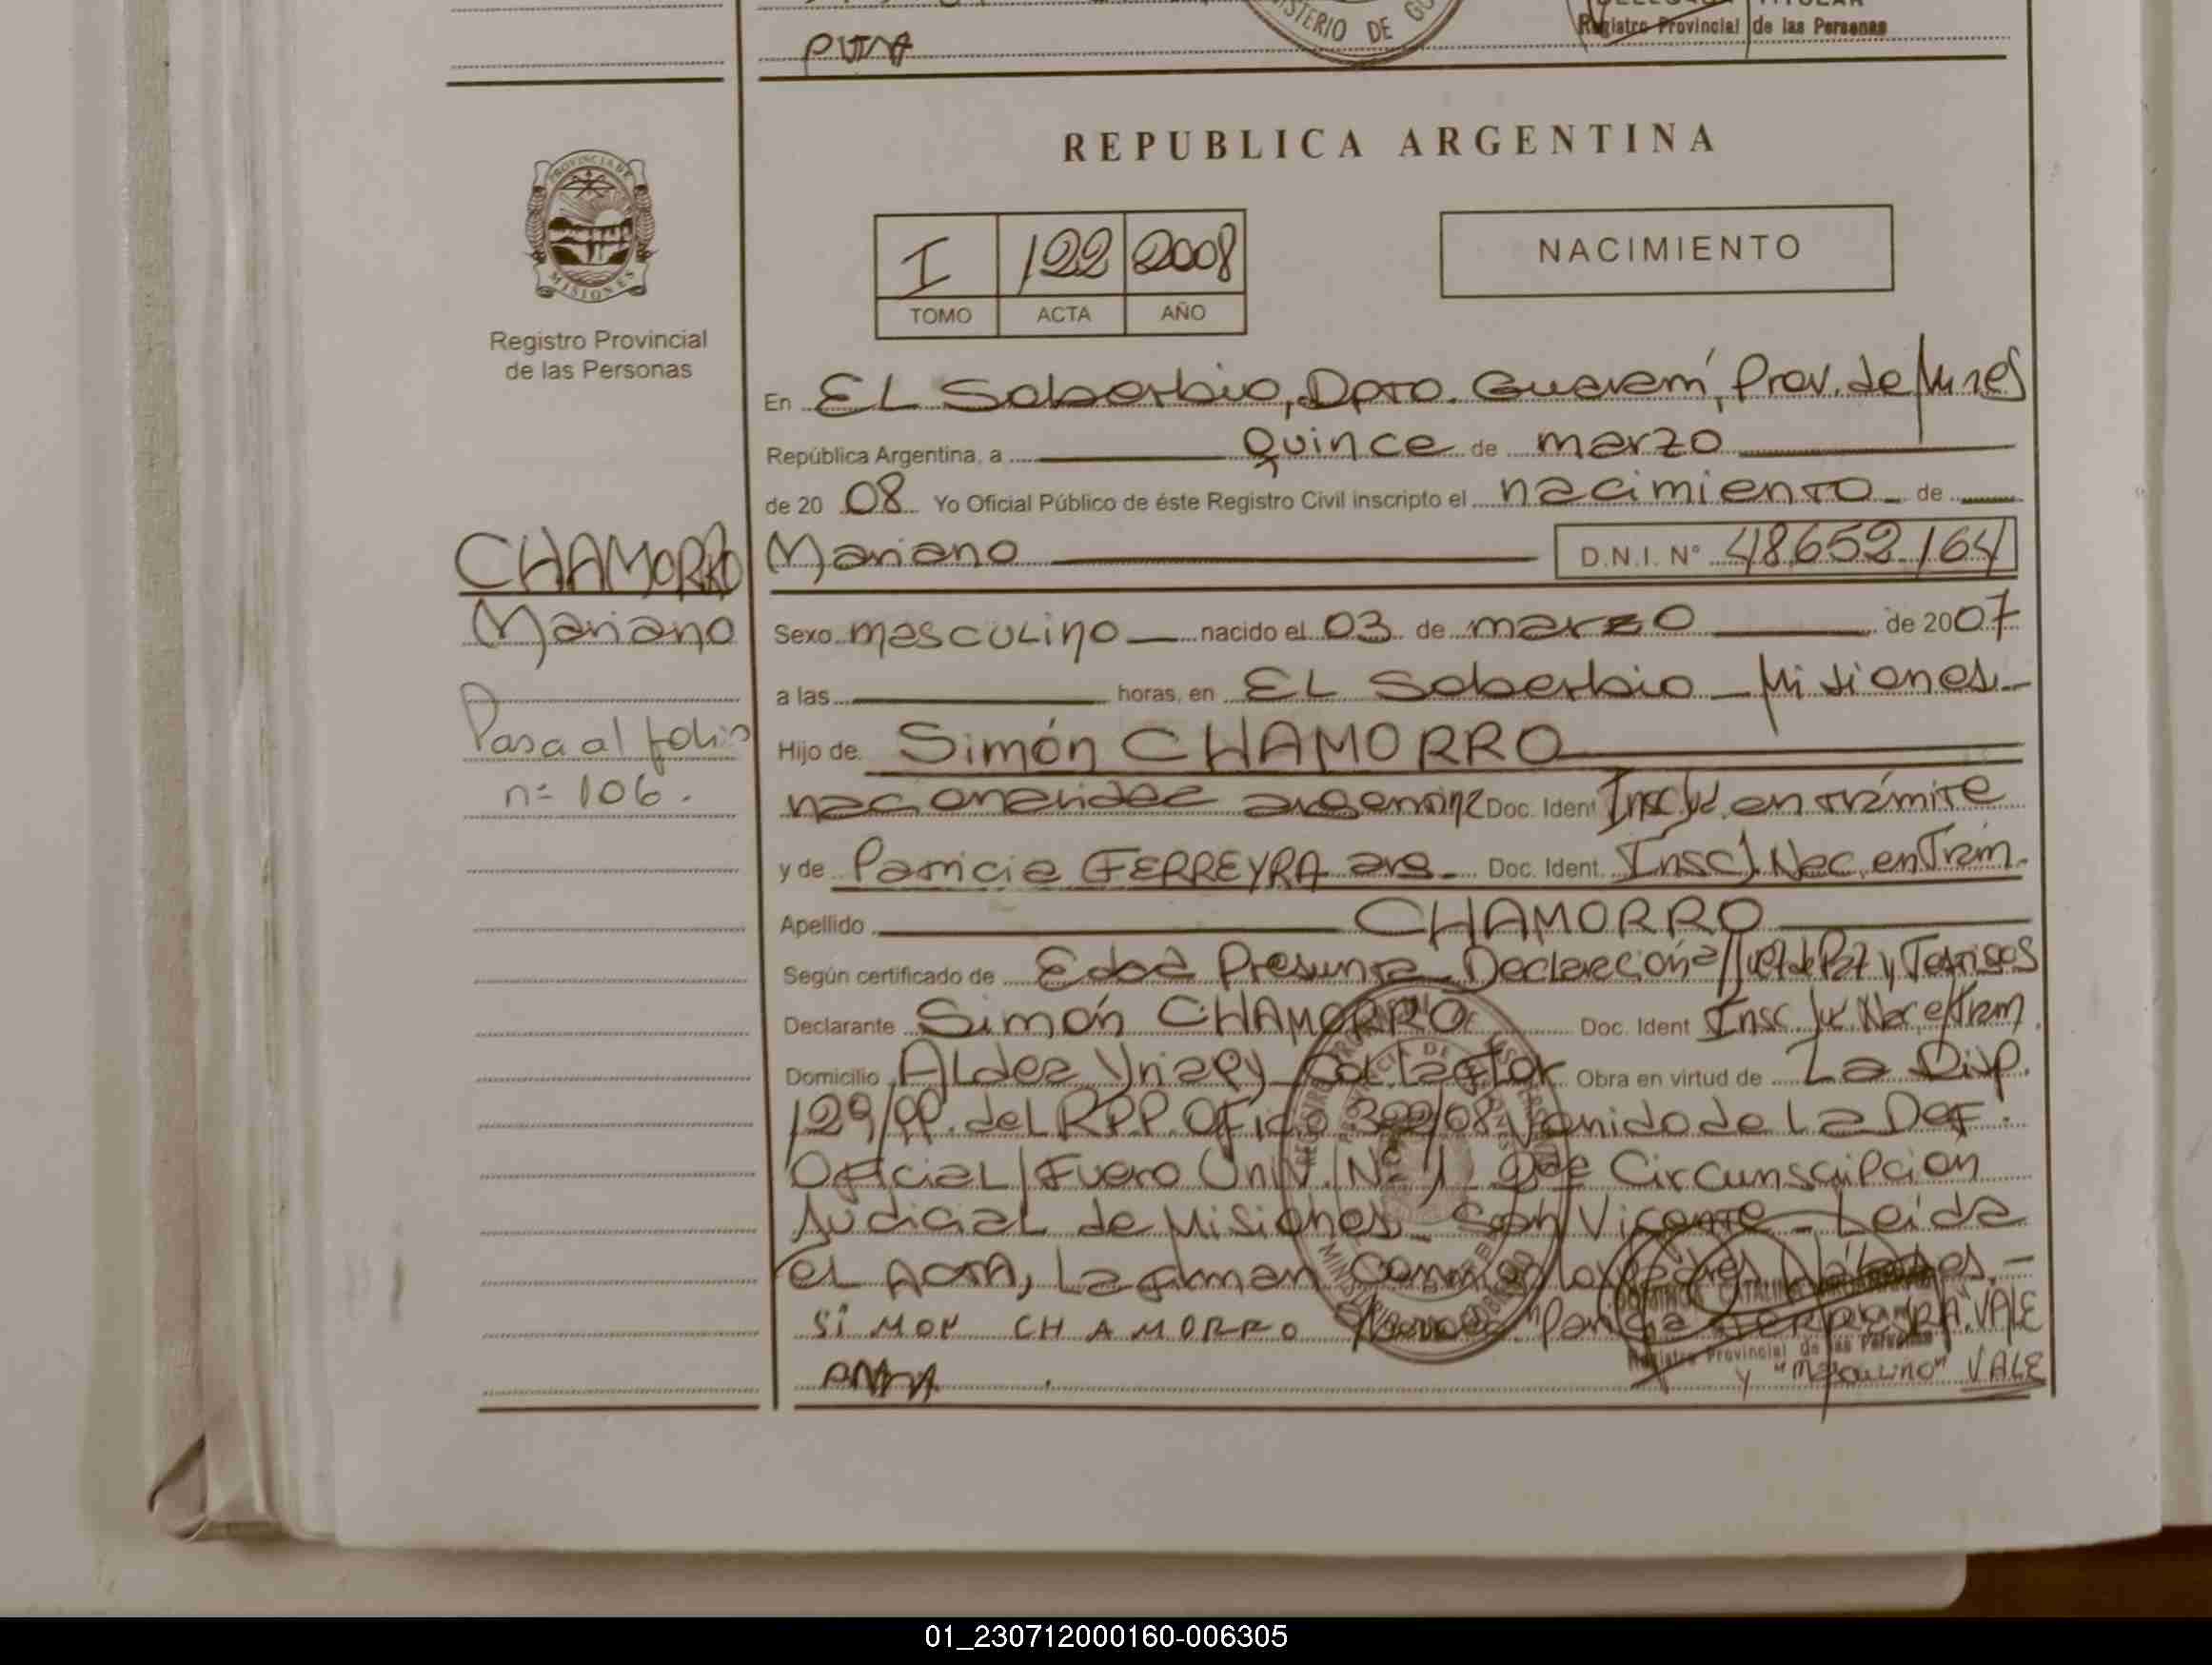 PUNA
MINISTERIO DE GO
TITULAR
Registro Provincial de las Personas
PROVINCIA DE
MISIONES
Registro Provincial
de las Personas
REPUBLICA ARGENTINA
I 122 2008
TOMO ACTA AÑO
NACIMIENTO
En EL Soberbio, Dpto. Guaraní, Prov. de Mnes
República Argentina, a quince de marzo
de 20 08 Yo Oficial Público de éste Registro Civil inscripto el nacimiento de
CHAMORRO
Mariano
Pasa al folio
nº 106.
Mariano D.N.I. Nº 48652164
Sexo masculino nacido el 03 de marzo de 2007
a las horas, en EL Soberbio - Misiones -
Hijo de Simón CHAMORRO
nacionalidad argentina Doc. Ident en trámite
y de Patricia FERREYRA arg. Doc. Ident. Insc. Nac. en Trám.
Apellido CHAMORRO
Según certificado de Edad Presunta Declaración Juez de Paz y Testigos
Declarante Simón CHAMORRO Doc. Ident Insc. Nac. e/Trám.
Domicilio Aldea Yriapy Col. La Flor Obra en virtud de La Disp.
129/99. del R.P.P. Oficio /08 Venido de La Def.
Oficial/Fuero Univ. Nº 1 2da Circunscripcion
Judicial de Misiones - San Vicente - Leída
el Acta, La firman Conmigo los
SIMON CHAMORRO VALE
Registro Provincial de las Personas
y "Masculino" VALE
01_230712000160-006305